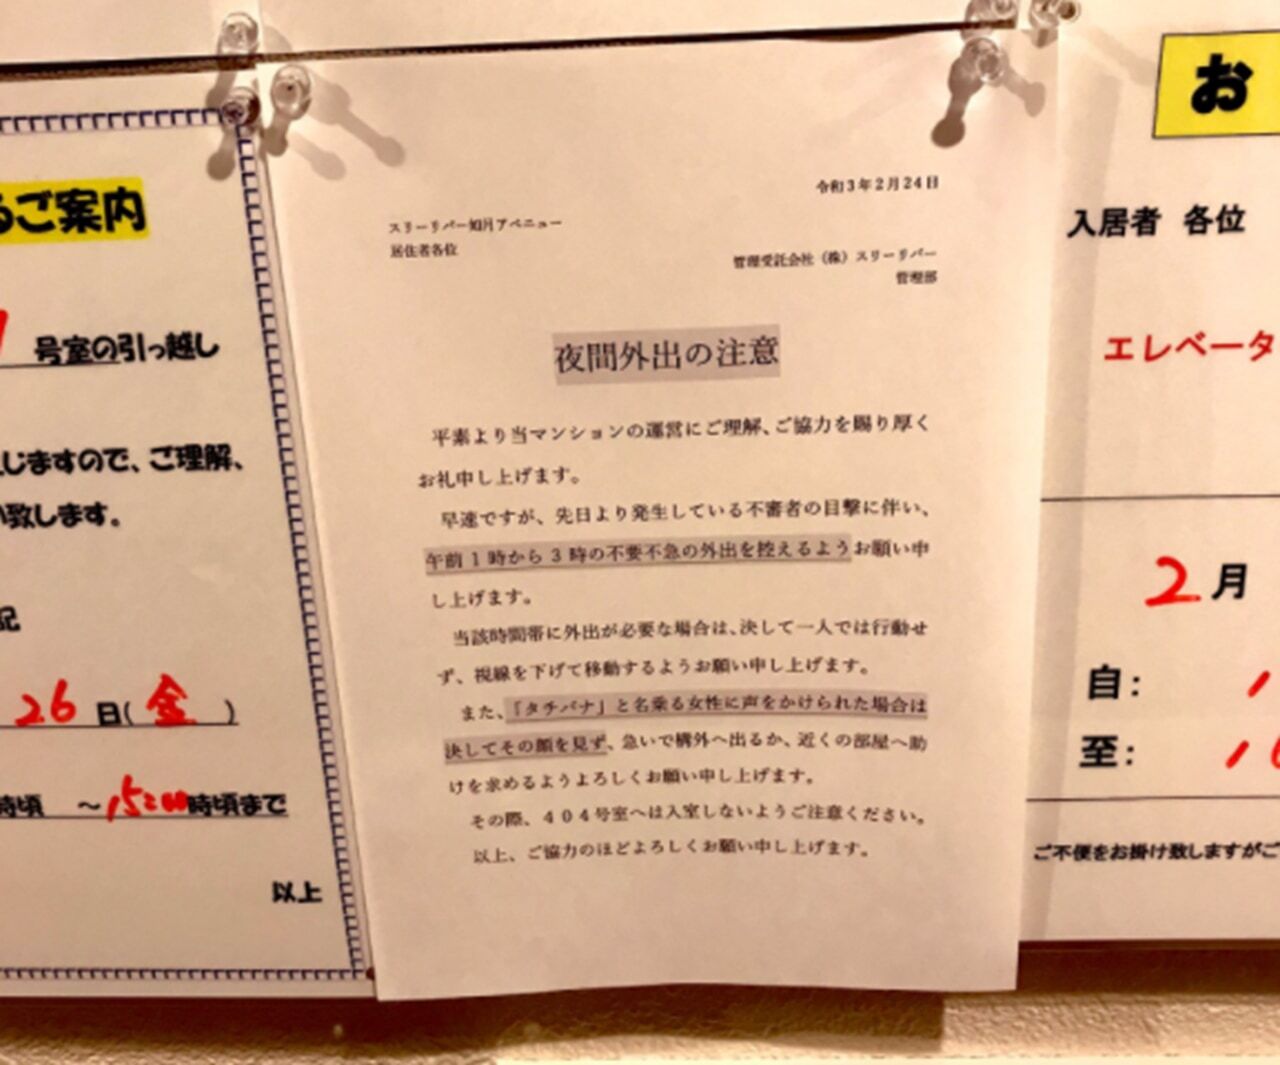 るご案内
号室の引っ越し
じますので、ご理解、
い致します。
記
26日(金)
時頃 ～15:00時頃まで
以上
令和3年2月24日
スリーリバー如月アベニュー
居住者各位
管理受託会社（株）スリーリバー
管理部
夜間外出の注意
平素より当マンションの運営にご理解、ご協力を賜り厚く
お礼申し上げます。
早速ですが、先日より発生している不審者の目撃に伴い、
午前1時から3時の不要不急の外出を控えるようお願い申
し上げます。
当該時間帯に外出が必要な場合は、決して一人では行動せ
ず、視線を下げて移動するようお願い申し上げます。
また、「タチバナ」と名乗る女性に声をかけられた場合は
決してその顔を見ず、急いで構外へ出るか、近くの部屋へ助
けを求めるようよろしくお願い申し上げます。
その際、404号室へは入室しないようご注意ください。
以上、ご協力のほどよろしくお願い申し上げます。
お
入居者 各位
エレベータ
2月
自：
至：
ご不便をお掛け致しますがご